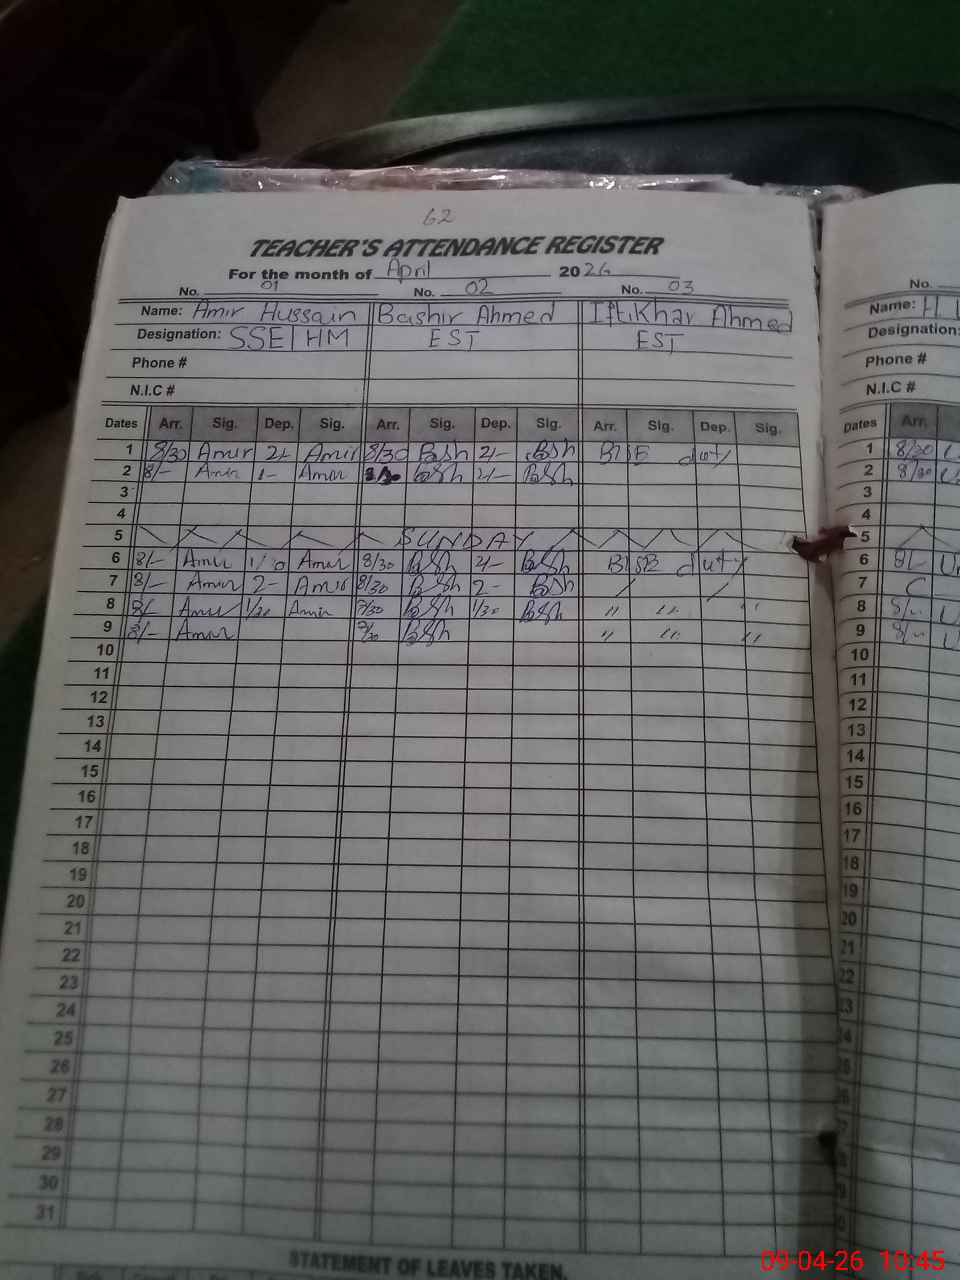 62
TEACHER'S ATTENDANCE REGISTER
For the month of April 2026
No. 01 No. 02 No. 03
Name: Amir Hussain Bashir Ahmed Iftikhar Ahmed
Designation: SSE/HM EST EST
Phone #
N.I.C #
Dates Arr. Sig. Dep. Sig. Arr. Sig. Dep. Sig. Arr. Sig. Dep. Sig.
1 8/30 Amir 2/- Amir 8/30 Bsh 2/- Bsh BISE duty
2 8/- Amir 1- Amir Bsh 2/- Bsh
3
4
5 SUNDAY
6 8/- Amir 1/30 Amir 8/30 Bsh 2/- Bsh BISE duty
7 8/- Amir 2- Amir 8/30 Bsh 2- Bsh / /
8 8/- Amir 1/30 Amir 7/30 Bsh 1/30 Bsh " " "
9 8/- Amir 7/30 Bsh " " "
10
11
12
13
14
15
16
17
18
19
20
21
22
23
24
25
26
27
28
29
30
31
STATEMENT OF LEAVES TAKEN.
No.
Name: H
Designation:
Phone #
N.I.C #
Dates Arr.
1 8/30
2 8/30
3
4
5
6 8/-
7 C
8 8/-
9 8/-
10
11
12
13
14
15
16
17
18
19
20
21
22
23
24
25
26
09-04-26 10:45